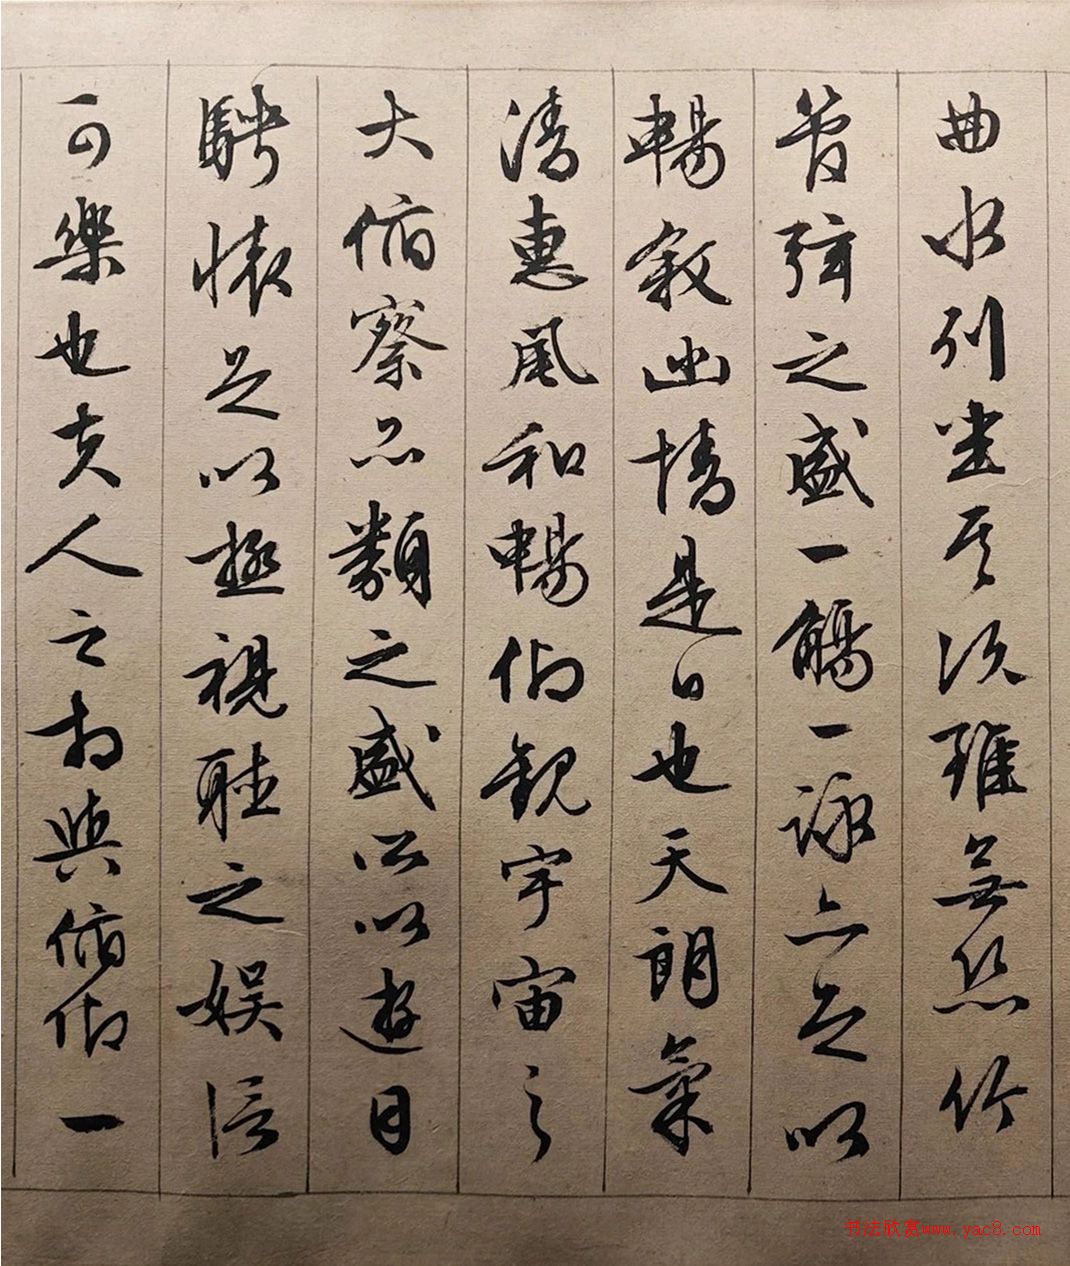 曲水列坐其次雖無絲竹
管弦之盛一觴一詠亦足以
暢敘幽情是日也天朗氣
清惠風和暢仰觀宇宙之
大俯察品類之盛所以遊目
騁懷足以極視聽之娛信
可樂也夫人之相與俯仰一
书法欣赏www.yac8.com